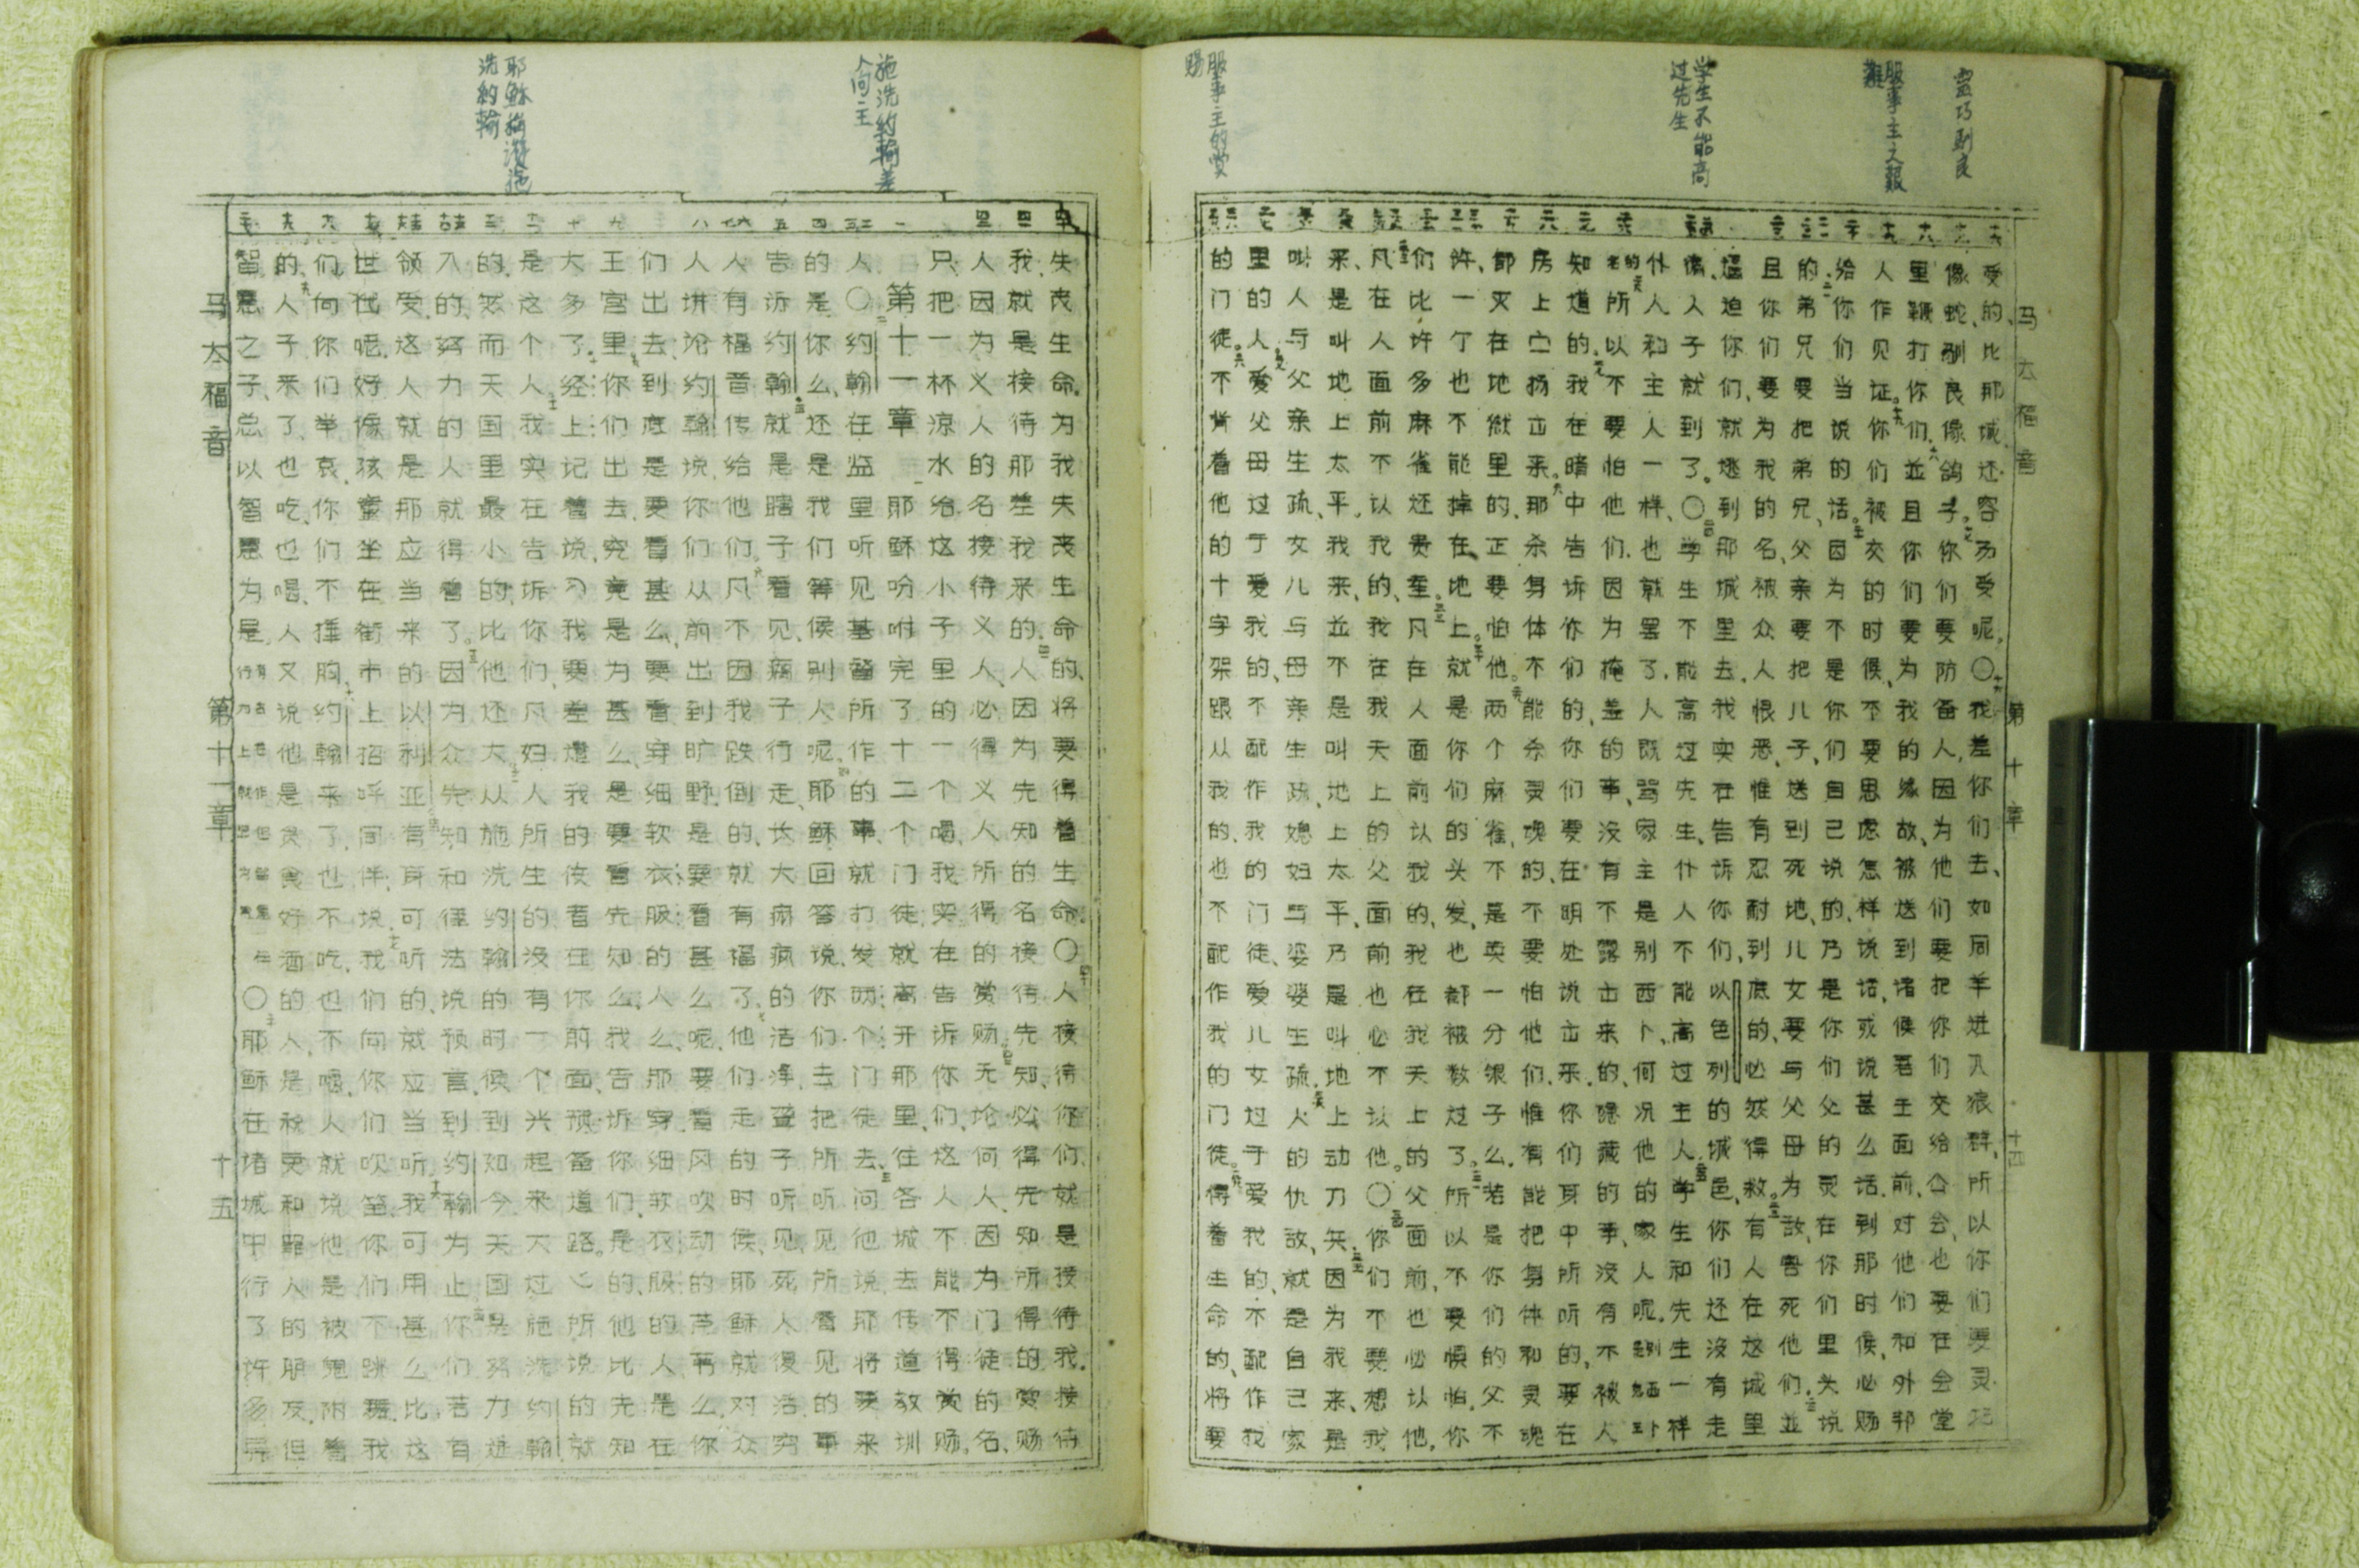 灵巧驯良
服事主之艰难
学生不能高过先生
服事主的赏赐
马太福音 第十章 十四
受的、比那城还容易受呢。〇我差你们去、如同羊进入狼群、所以你们要灵巧
像蛇、驯良像鸽子。你们要防备人、因为他们要把你们交给公会、也要在会堂
里鞭打你们、並且你们要为我的缘故、被送到诸候君王面前、对他们和外邦
人作见证。你们被交的时候、不要思虑怎样说话、或说甚么话、到那时候、必赐
给你们当说的话。因为不是你们自己说的、乃是你们父的灵在你们里头说
的。弟兄要把弟兄、父亲要把儿子、送到死地、儿女要与父母为敌、害死他们、並
且你们要为我的名、被众人恨恶、惟有忍耐到底的、必然得救。有人在这城里
逼迫你们、就逃到那城里去、我实在告诉你们、以色列的城邑、你们还没有走
人子就到了。〇学生不能高过先生、仆人不能高过主人。学生和先生一样
仆人和主人一样、也就罢了、人既骂家主是别西卜、何况他的家人呢。
所以不要怕他们、因为掩盖的事、没有不露出来的、隐藏的事、没有不被人
知道的。我在暗中告诉你们的、你们要在明处说出来、你们耳中所听的、要在
房上宣扬出来。那杀身体不能杀灵魂的、不要怕他们、惟有能把身体和灵魂
都灭在地狱里的、正要怕他。两个麻雀、不是卖一分银子么、若是你们的父不
许、一个也不能掉在地上。就是你们的头发、也都被数过了。所以不要惧怕、你
们比许多麻雀还贵重。凡在人面前认我的、我在天上的父面前、也必认他、
凡在人面前不认我的、我在天上的父面前、也必不认他。〇你们不要想我
来、是叫地上太平、我来、並不是叫地上太平、乃是叫地上动刀兵、因为我来、是
叫人与父亲生疏、女儿与母亲生疏、媳妇与婆婆生疏、人的仇敌、就是自己家
里的人。爱父母过于爱我的、不配作我的门徒、爱儿女过于爱我的、不配作我
的门徒。不背着他的十字架跟从我的、也不配作我的门徒。得着生命的、将要
施洗约翰差人问主
耶稣称讚施洗约翰
失丧生命。为我失丧生命的、将要得着生命。〇人接待你们、就是接待我。接待
我就是接待那差我来的。人因为先知的名接待先知、必得先知所得的赏赐
人因为义人的名接待义人、必得义人所得的赏赐、无论何人、因为门徒的名、
只把一杯凉水给这小子里的一个喝、我实在告诉你们、这人不能不得赏赐。
第十一章 耶稣吩咐完了十二个门徒、就离开那里、往各城去传道教训
人。〇约翰在监里听见基督所作的事、就打发两个门徒去、问他说、那将要来
的是你么、还是我们等候别人呢。耶稣回答说、你们去把所听见所看见的事
告诉约翰就是瞎子看见、瘸子行走、长大痲疯的洁净、聋子听见、死人复活、穷
人有福音传给他们。凡不因我跌倒的、就有福了。他们走的时候、耶稣就对众
人讲论约翰说、你们从前出到旷野、是要看甚么呢、要看风吹动的芦苇么、你
们出去到底是要看甚么、要看穿细软衣服的人么、那穿细软衣服的人是在
王宫里。你们出去、究竟是为甚么、是要看先知么、我告诉你们、是的、他比先知
大多了。经上记着说、我要差遣我的使者在你前面、预备道路。所说的就
是这个人。我实在告诉你们、凡妇人所生的、没有一个兴起来大过施洗约翰
的、然而天国里最小的、比他还大。从施洗约翰的时候到如今、天国是努力进
入的、努力的人就得着了。因为众先知和律法说预言、到约翰为止。你们若有
领受、这人就是那应当来的以利亚。有耳可听的、就应当听。我可用甚么比这
世代呢、好像孩童坐在街市上招呼同伴、说、我们向你们吹笛、你们不跳舞、我
们向你们举哀、你们不捶胸。约翰来了、也不吃、也不喝、人就说他是被鬼附着
的、人子来了、也吃、也喝、人又说他是贪食好酒的人、是税吏和罪人的朋友、但
智慧之子、总以智慧为是、〇耶稣在诸城中行了许多异
马太福音 第十一章 十五